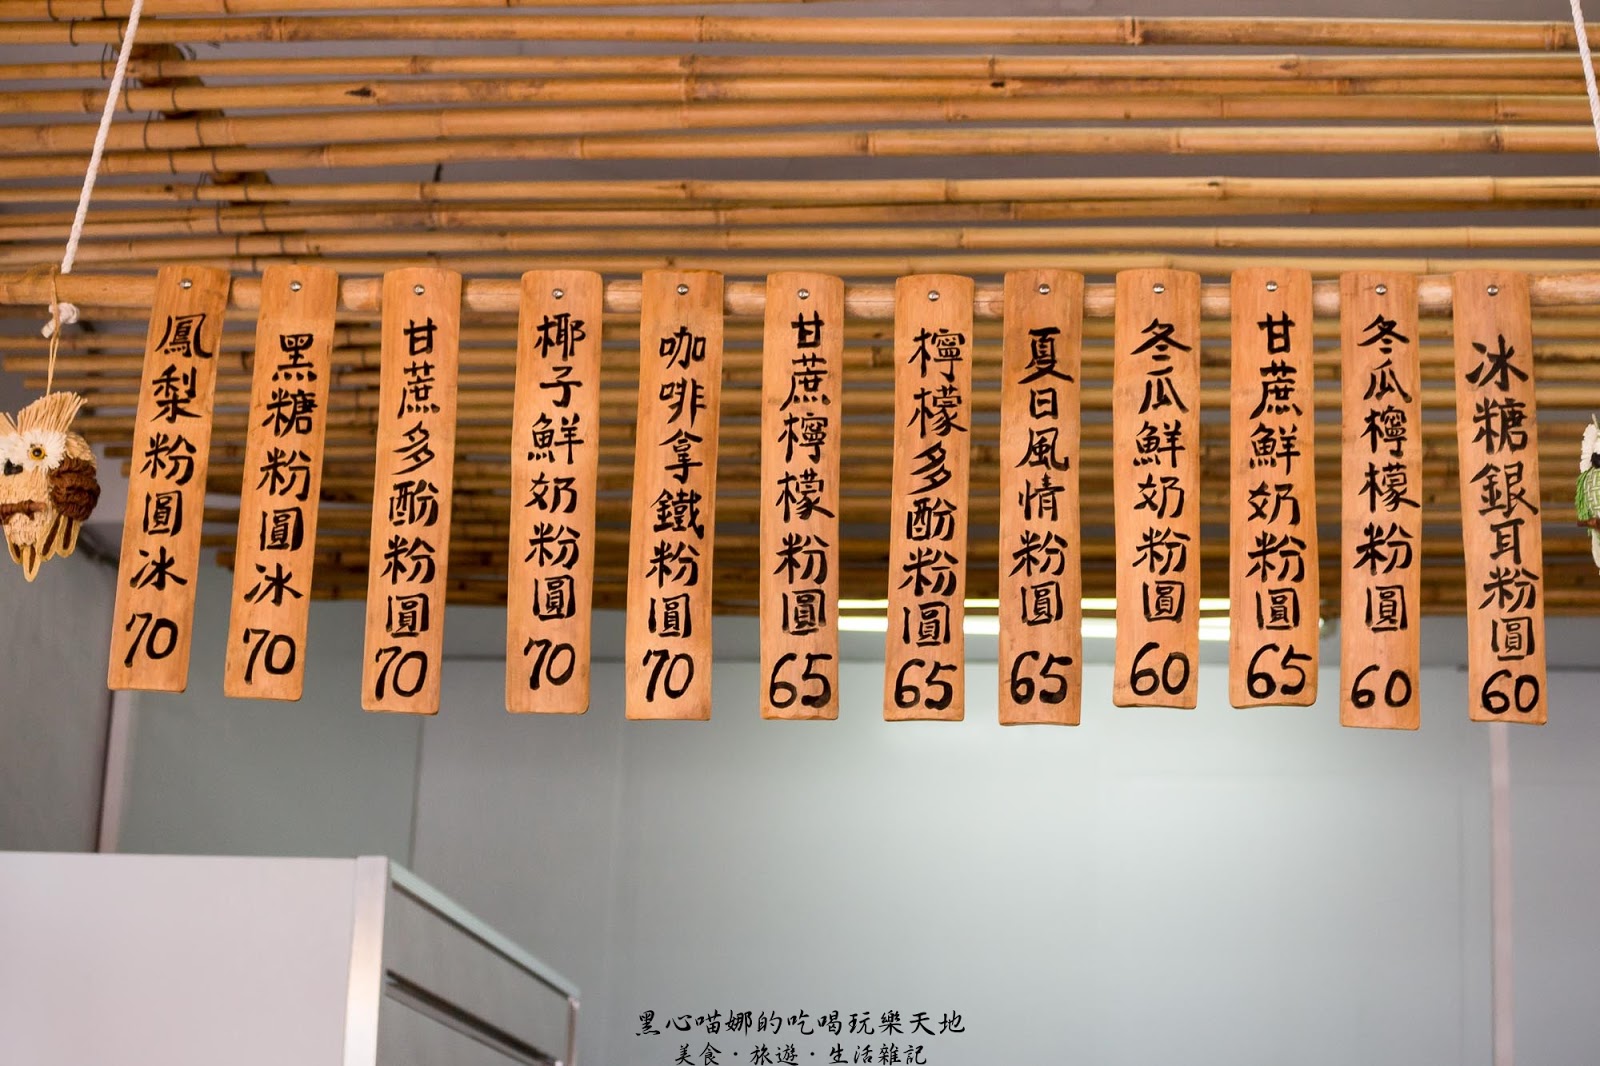 冰糖銀耳粉圓 60
冬瓜檸檬粉圓 60
甘蔗鮮奶粉圓 65
冬瓜鮮奶粉圓 60
夏日風情粉圓 65
檸檬多酚粉圓 65
甘蔗檸檬粉圓 65
咖啡拿鐵粉圓 70
椰子鮮奶粉圓 70
甘蔗多酚粉圓 70
黑糖粉圓冰 70
鳳梨粉圓冰 70
黑心喵娜的吃喝玩樂天地
美食·旅遊·生活雜記